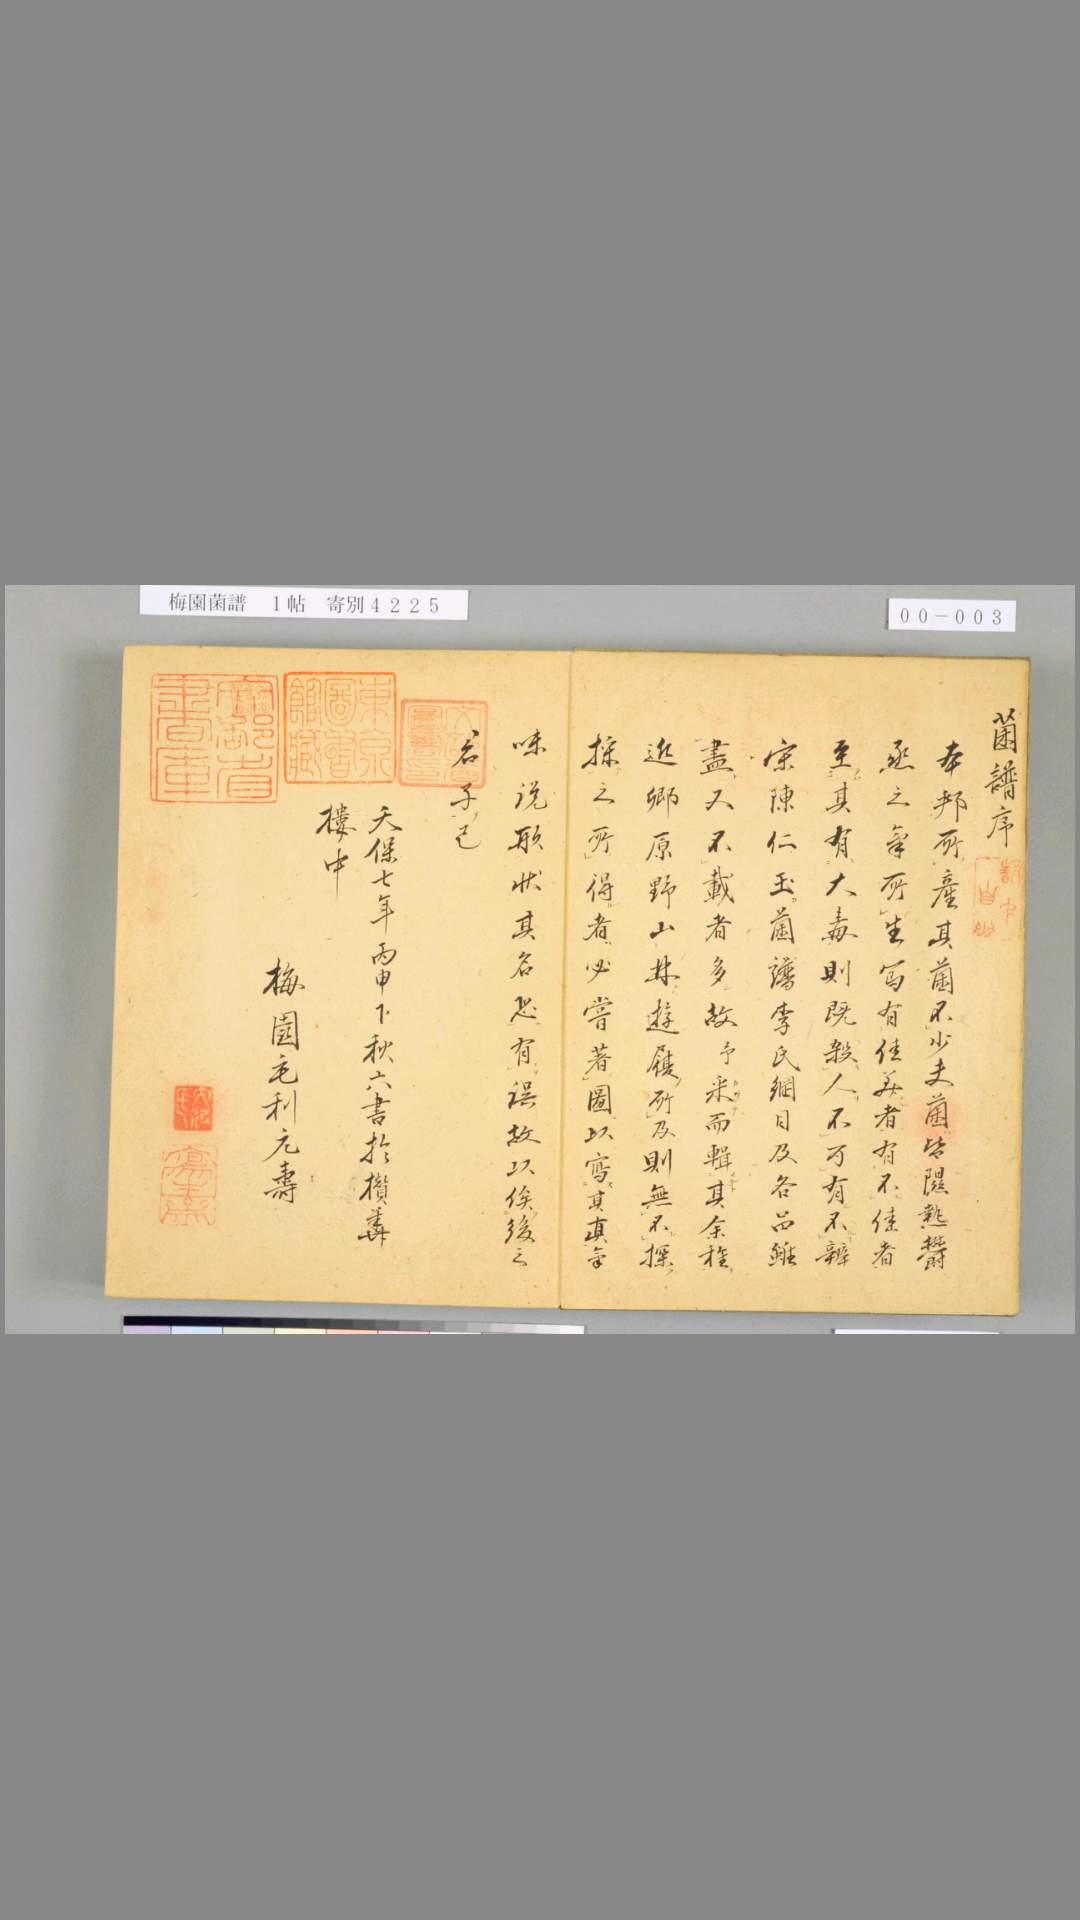 梅園菌譜　１帖　寄別４２２５
００－００３
菌譜序
本邦所產其菌不少夫菌皆隰熱鬱
蒸之氣所生焉有佳美者有不佳者
至其有大毒則既殺人不可有不辨
宋陳仁玉菌譜李氏綱目及各品雖
盡又不載者多故予采而輯其余種
近鄉原野山林遊履所及則無不探
採之所得者必嘗著圖以寫其真氣
味說形狀其名恐有誤故以俟後之
君子已
天保七年丙申下秋六書於攢華
樓中
梅園毛利元壽
東京
圖書
館藏